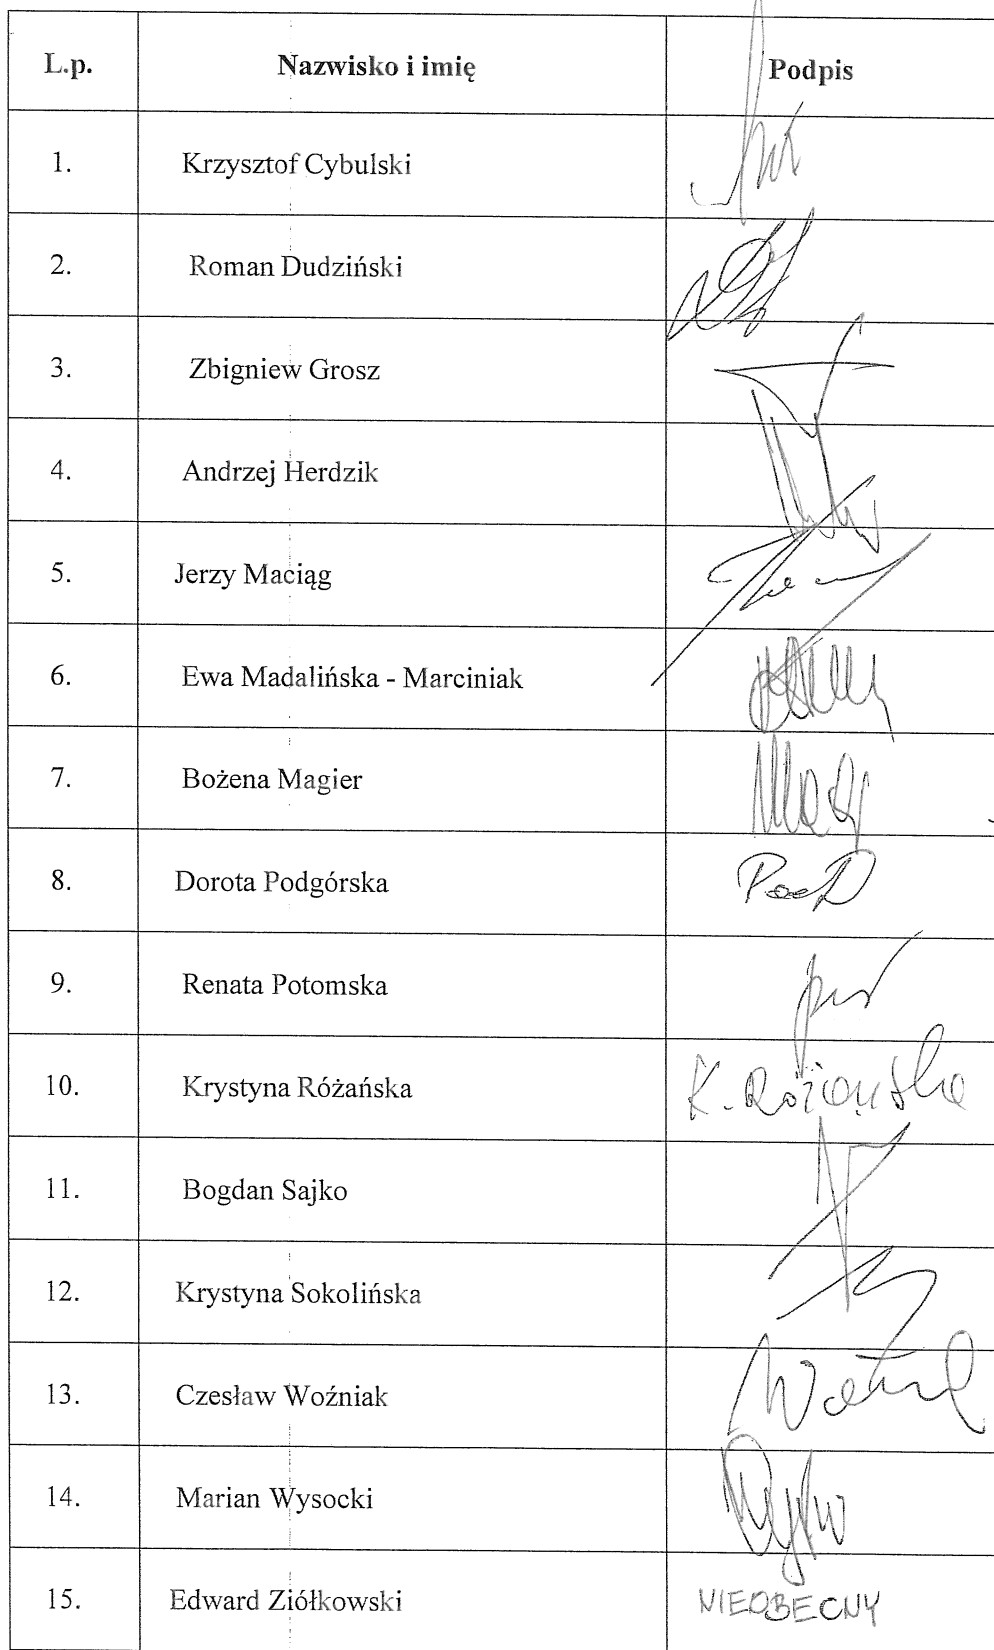 L.p. Nazwisko i imię Podpis
1. Krzysztof Cybulski
2. Roman Dudziński
3. Zbigniew Grosz
4. Andrzej Herdzik
5. Jerzy Maciąg
6. Ewa Madalińska - Marciniak
7. Bożena Magier
8. Dorota Podgórska
9. Renata Potomska
10. Krystyna Różańska K. Różańska
11. Bogdan Sajko
12. Krystyna Sokolińska
13. Czesław Woźniak
14. Marian Wysocki
15. Edward Ziółkowski NIEOBECNY